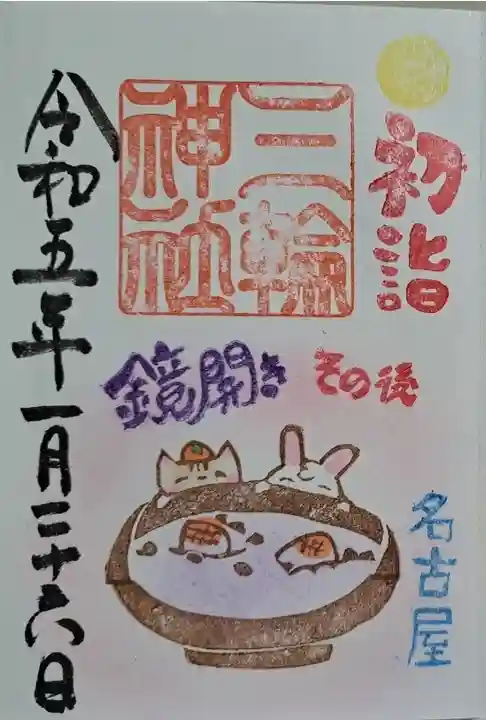 初詣
三輪
神社
鏡開き その後
名古屋
令和五年一月二十六日